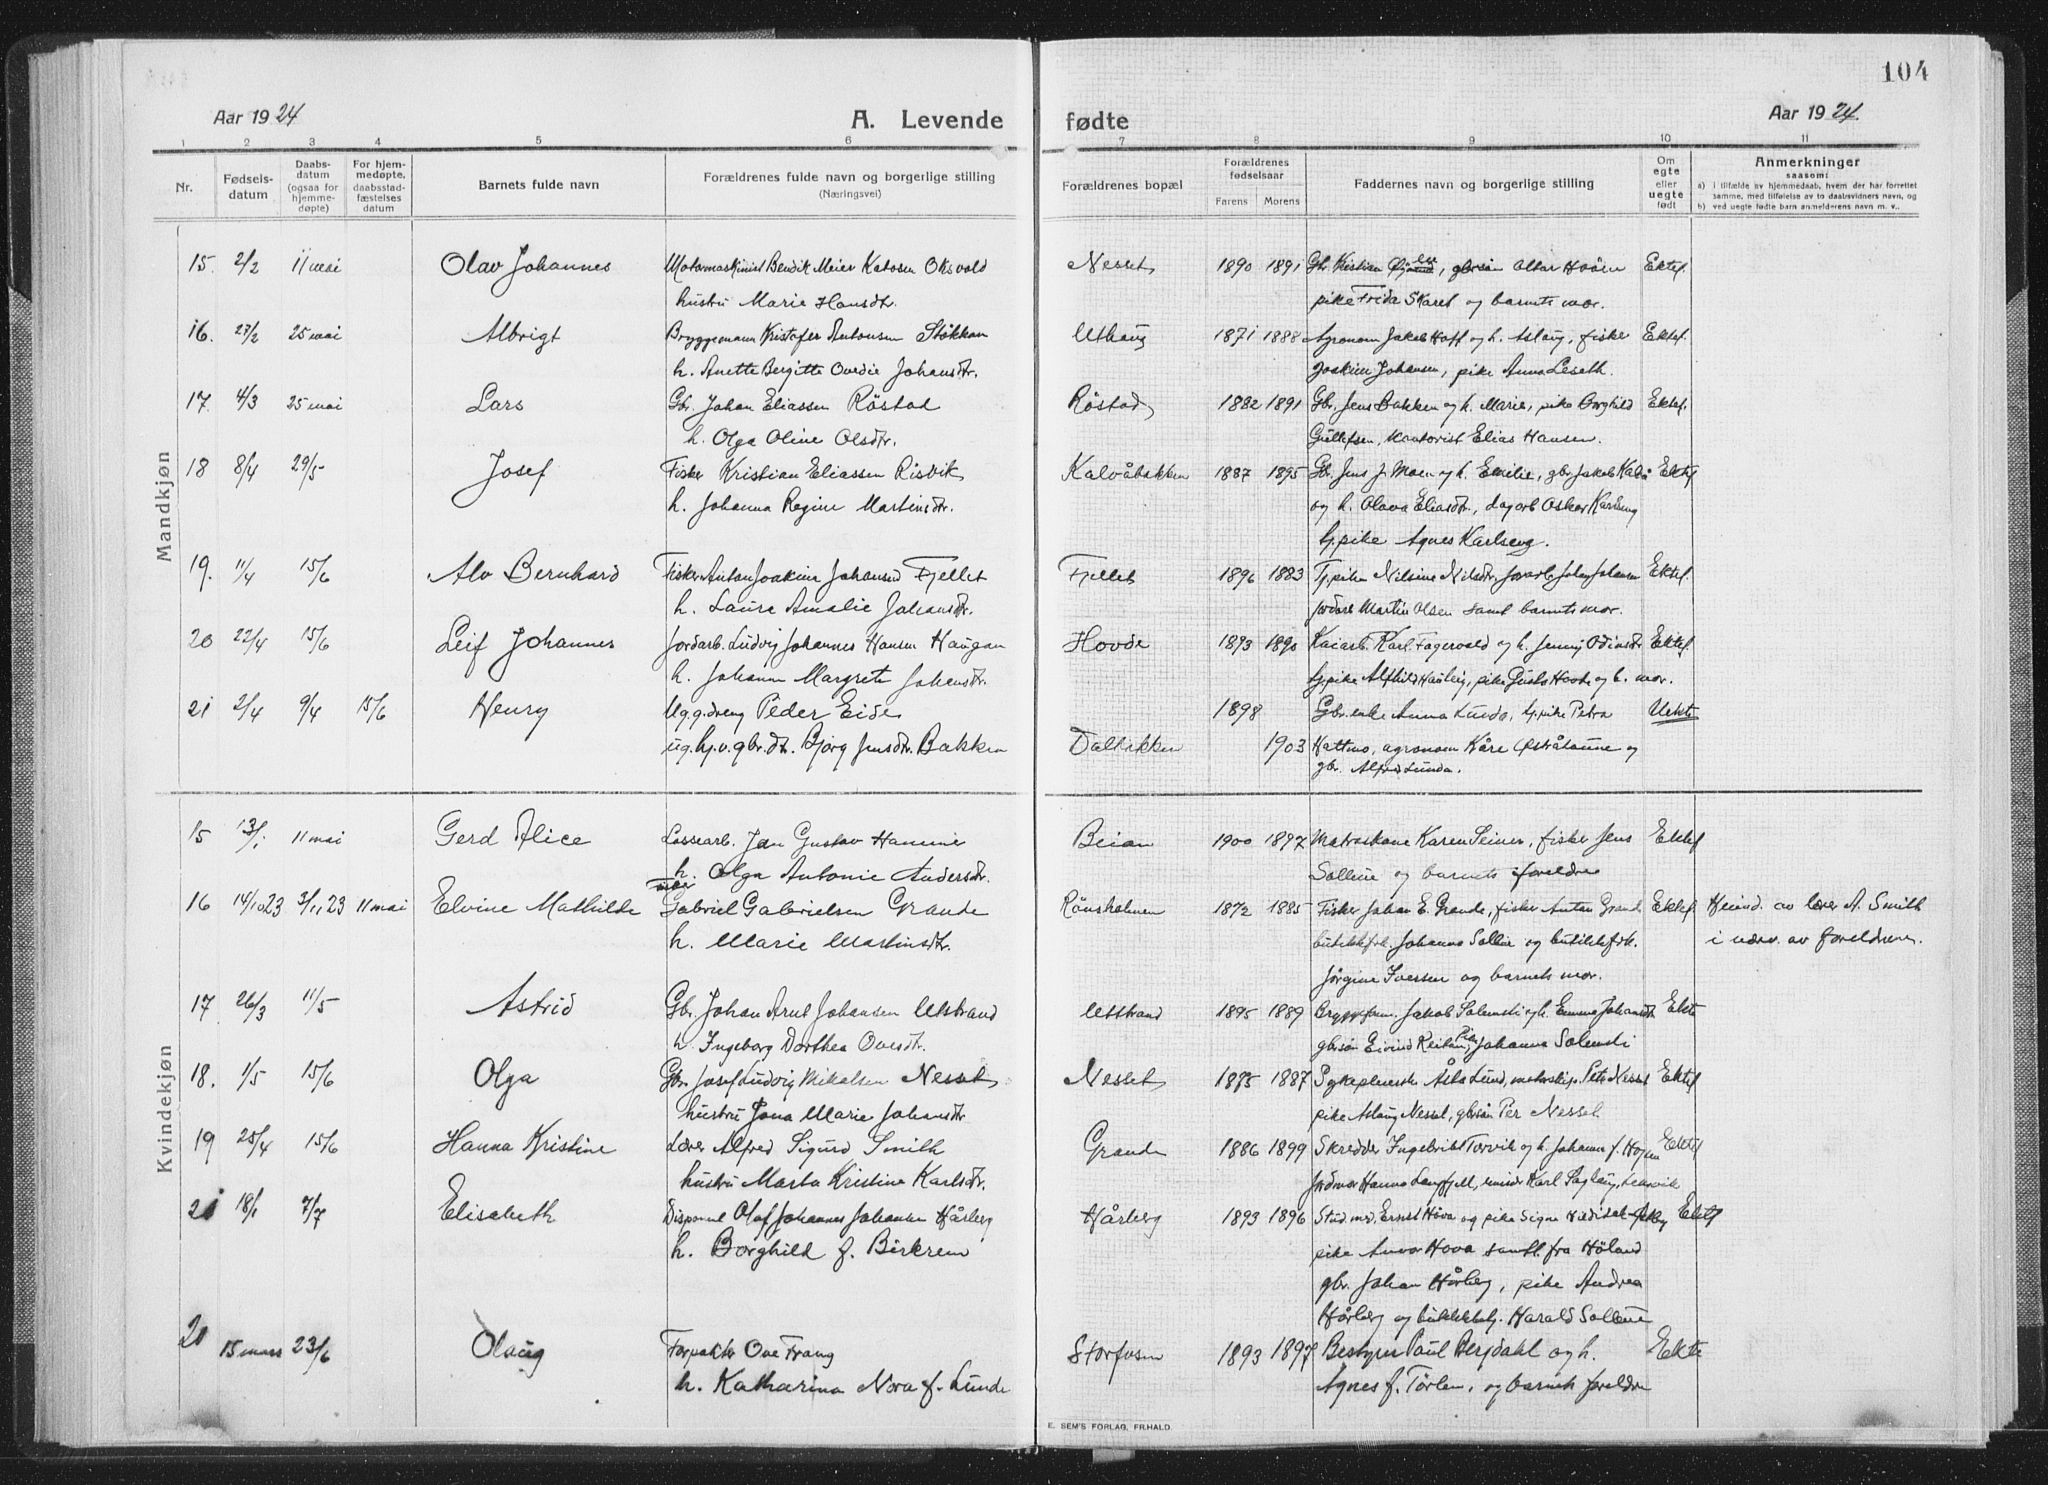 104
Aar 1924 A. Levende fødte Aar 1924.
1 2 3 4 5 6 7 8 9 10 11
Nr. Fødselsdatum Daabsdatum (ogsaa for hjemmedøpte) For hjemmedøpte, daabsstadfæstelses datum Barnets fulde navn Forældrenes fulde navn og borgerlige stilling (Næringsvei) Forældrenes bopæl Forældrenes fødselsaar Farens Morens Faddernes navn og borgerlige stilling Om egte eller uegte født Anmerkninger saasom:
a) i tilfælde av hjemmedaab, hvem der har forrettet samme, med tilføielse av to daabsvidners navn, og
b) ved uegte fødte barn anmelderens navn m. v..
Mandkjøn
15. 2/2 11 mai Olav Johannes Motormaskinist Bendik Meier Katosen Oksvold Nesset 1890 1891 Gbr. Kristian, gbrsøn Ottar Hoøen Ektef.
hustru Marie Hansdtr. pike Frida Skaret og barnets mor.
16. 27/2 25 mai Albrigt Bryggemann Kristofer Antonsen Stökkan Uthaug 1871 1888 Agronom Jakob Hoff og h. Aslaug, fisker Ektef.
h. Anette Bergitte Ovedie Johansdtr. Joakim Johansen, pike Anna Leseth.
17. 4/3 25 mai Lars Gbr. Johan Eliassen Röstad Röstad 1882 1891 Gbr. Jens Bakken og h. Marie, pike Borghild Ektef.
h. Olga Oline Olsdtr. Gullefsen, kontorist Elias Hansen.
18 8/4 29/5 Josef Fisker Kristian Eliassen Risvik Kalvåbakken 1887 1895 Gbr. Jens J. Moen og h. Emilie, gbr. Jakob Kalvå Ektef
h. Johanna Regine Martinsdtr. og h. Olava Eliasdtr., dagarb Oskar Karlseng
tj.pike Agnes Karlseng.
19. 11/4 15/6 Alv Bernhard Fisker Anton Joakim Johansen Fjellet Fjellet 1896 1883 Tj.piken Nilsine Nilsdtr, jordarb. Johan Johansen Ektef.
h. Laura Amalie Johansdtr. jordarb Martin Olsen samt barnets mor.
20 22/4 15/6 Leif Johannes Jordarb. Ludvig Johannes Hansen Haugan Hovde 1893 1890 Kaiarb. Karl Fagervold og h. Jenny Odinsdtr Ektef.
h. Johanna Margrete Johansdtr. tj.pike Alfhild Hauberg, pike Gusta Hovde og b. mor.
21 2/4 9/4 15/6 Henry Ug. g.dreng Peder Eide 1898 Gbr.enke Anna Lunda, tj.pike Petra Uekte
ug. hj.v. gbr.dt. Bjørg Jensdtr. Bakken Dalbakken 1903 Hattmo, agronom Kåre Østråtaune og
gbr. Alfred Lunda.
Kvindekjøn
15 13/1 11 mai Gerd Alice Lossearb. Jon Gustav Hammer Beian 1900 1897 Matroskone Karen Seiner, fisker Jens Ektef
h. Olga Antonie Andersdtr. Sollie og barnets foreldre
16 14/10 23 3/11 23 11 mai Elvine Mathilde Fisker Gabriel Gabrielsen Grande Rönsholmen 1872 1885 Fisker Johan E. Grande, fisker Anton Grande Ektef Hjemd. av lærer A. Smith
h. Marie Martinsdtr. butikkfrk. Johanna Sollie og butikkfrk. i nærv. av foreldrene.
Jörgine Iversen og barnets mor.
17 26/3 11/5 Astrid Gbr. Johan Arnt Johansen Utstrand Utstrand 1895 1889 Bryggefrm. Jakob Solemsli og h. Emma Johansdtr Ekte
h. Ingeborg Dorthea Ovesdtr. gbrsøn Eivind Reitan, Pike Johanna Solemsli
18. 1/5 15/6 Olga Gbr. Josef Ludvig Mikalsen Nesset Nesset 1875 1887 Sykepleierske Åsta Lund, Petr. Nesset Ektef
hustru Jona Marie Johansdtr. pike Aslaug Nesset, gbrsøn Per Nesset
19 25/4 15/6 Hanna Kristine Lærer Alfred Sigurd Smith Grande 1886 1899 Skredder Ingebrikt Torvik og h. Johanna f. Ektef
hustru Marta Kristine Karlsdtr. jordmor Hanna Langfjell, Karl Sagberg, Lensvik
21 18/1 7/7 Elisabeth Disponent Olaf Johannes Johansen Hårberg Hårberg 1893 1896 Stud. med. Ernst Hova og pike Signe Ektef
h. Borghild f. Birkrem pike Anna Hova samtl. fra Höland
gbr. Johan Hårberg, pike Andrea
Hårberg og butikkbetj. Harald Sollie
20 15 mars 23/6 Olaug Forpakter Ove Frang Storfosen 1893 1897 Bestyrer Paul Bergdahl og h. Ekte
h. Katharina Nora f. Lunde Agnes f. Tørlen, og barnets foreldre
E. SEM'S FORLAG, FR.HALD.